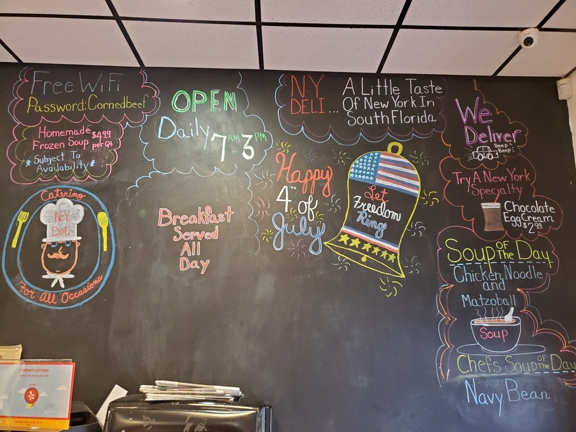 Free WiFi
Password: Cornedbeef
Homemade $4.99
Frozen Soup per Qt.
*Subject To
Availability*
Catering
For All Occasions
OPEN
Daily
7 AM 3 PM
Breakfast
Served
All
Day
N.Y.
DELI...
A Little Taste
Of New York In
South Florida
Happy
4th of
July
Let
Freedom
Ring
We
Deliver
Beep Beep!
Try A New York
Specialty
Chocolate
Egg Cream
$2.99
Soup of the Day
Chicken Noodle
and
Matzoball
Soup
Chef's Soup of the Day
Navy Bean